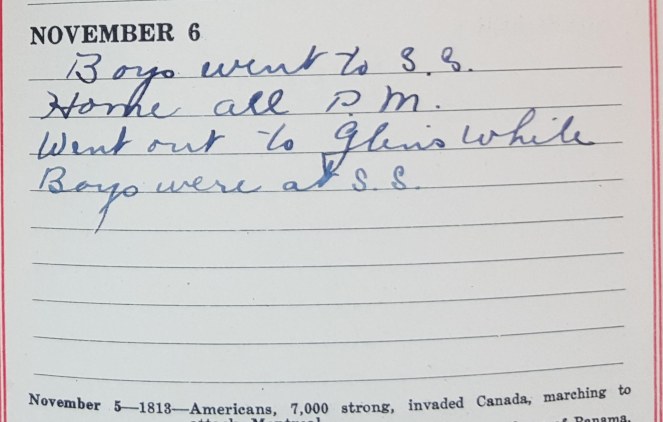 NOVEMBER 6
Boys went to S.S.
Home all P.M.
Went out to Glens while
Boys were at S.S.
November 5—1813—Americans, 7,000 strong, invaded Canada, marching to
attack Montreal
of Panama,